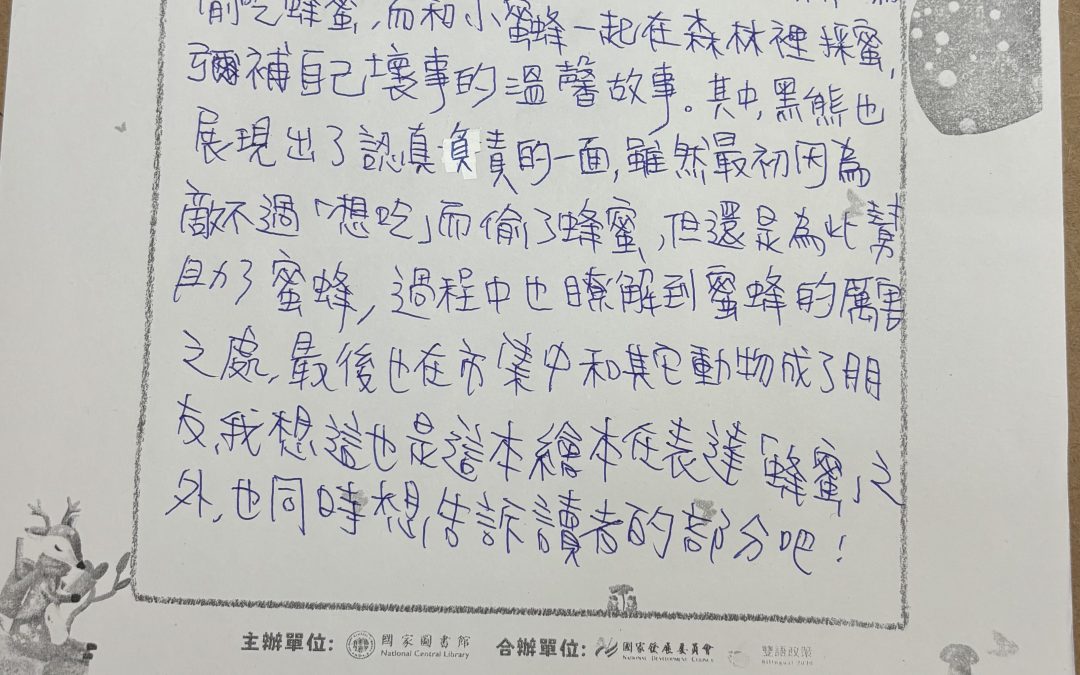 偷吃蜂蜜,而和小蜜蜂一起在森林裡採蜜,
彌補自己壞事的溫馨故事。其中,黑熊也
展現出了認真負責的一面,雖然最初因為
敵不過「想吃」而偷了蜂蜜,但還是為此幫
助了蜜蜂,過程中也瞭解到蜜蜂的厲害
之處,最後也在市集中和其它動物成了朋
友,我想這也是這本繪本在表達「蜂蜜」之
外,也同時想告訴讀者的部分吧!
主辦單位: 國家圖書館 National Central Library 合辦單位: 國家發展委員會 National Development Council 雙語政策 Bilingual 2030